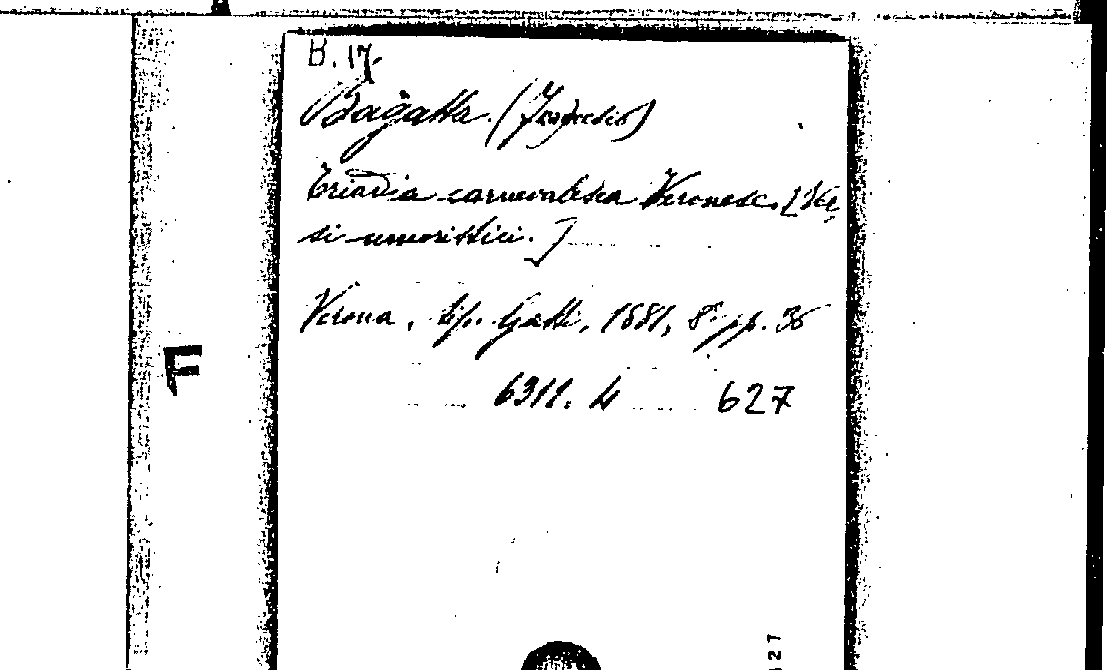 B. 17.
Bagatta (Francesco)
Triadia carnevalesca Veronese. [Ver,
si umoristici.]
Verona, tip. Gatti, 1881, 8° pp. 36
6311. 4 627
F
27